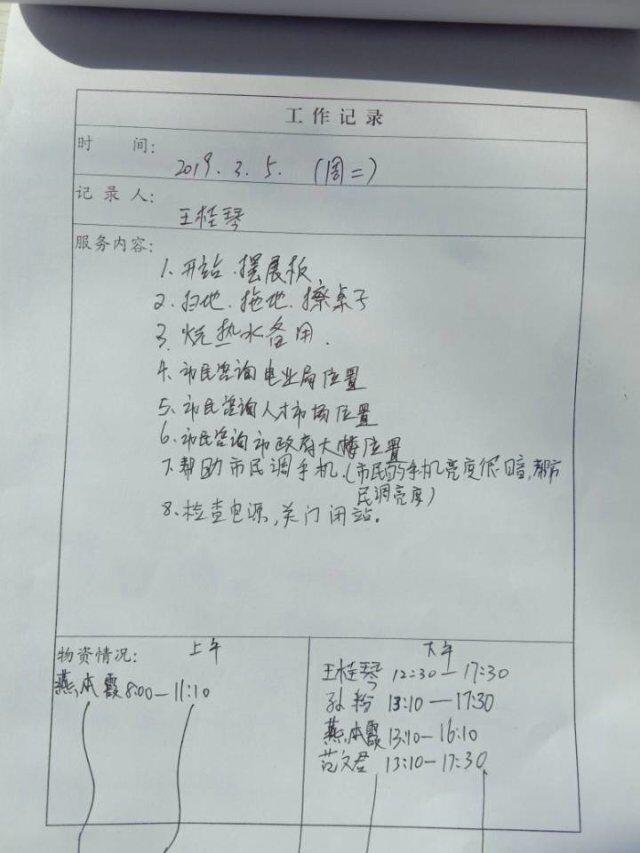 工作记录
时 间:
2019.3.5. (周二)
记 录 人:
王桂琴
服务内容:
1. 开站、摆展板
2. 扫地、拖地、擦桌子
3. 烧热水备用.
4. 市民咨询电业局位置
5. 市民咨询人才市场位置
6. 市民咨询市政府大楼位置
7. 帮助市民调手机. (市民的手机亮度很暗, 帮市
民调亮度)
8. 检查电源, 关门闭站.
物资情况: 上午
燕本霞 8:00—11:10
下午
王桂琴 12:30—17:30
孙粉 13:10—17:30
燕本霞 13:10—16:10
范文君 13:10—17:30